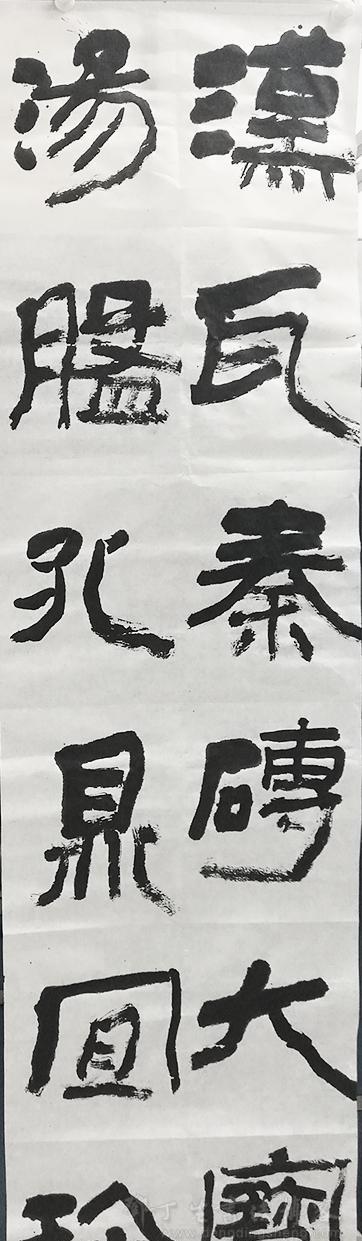 漢瓦秦磚大
湯盤孔鼎宜珍